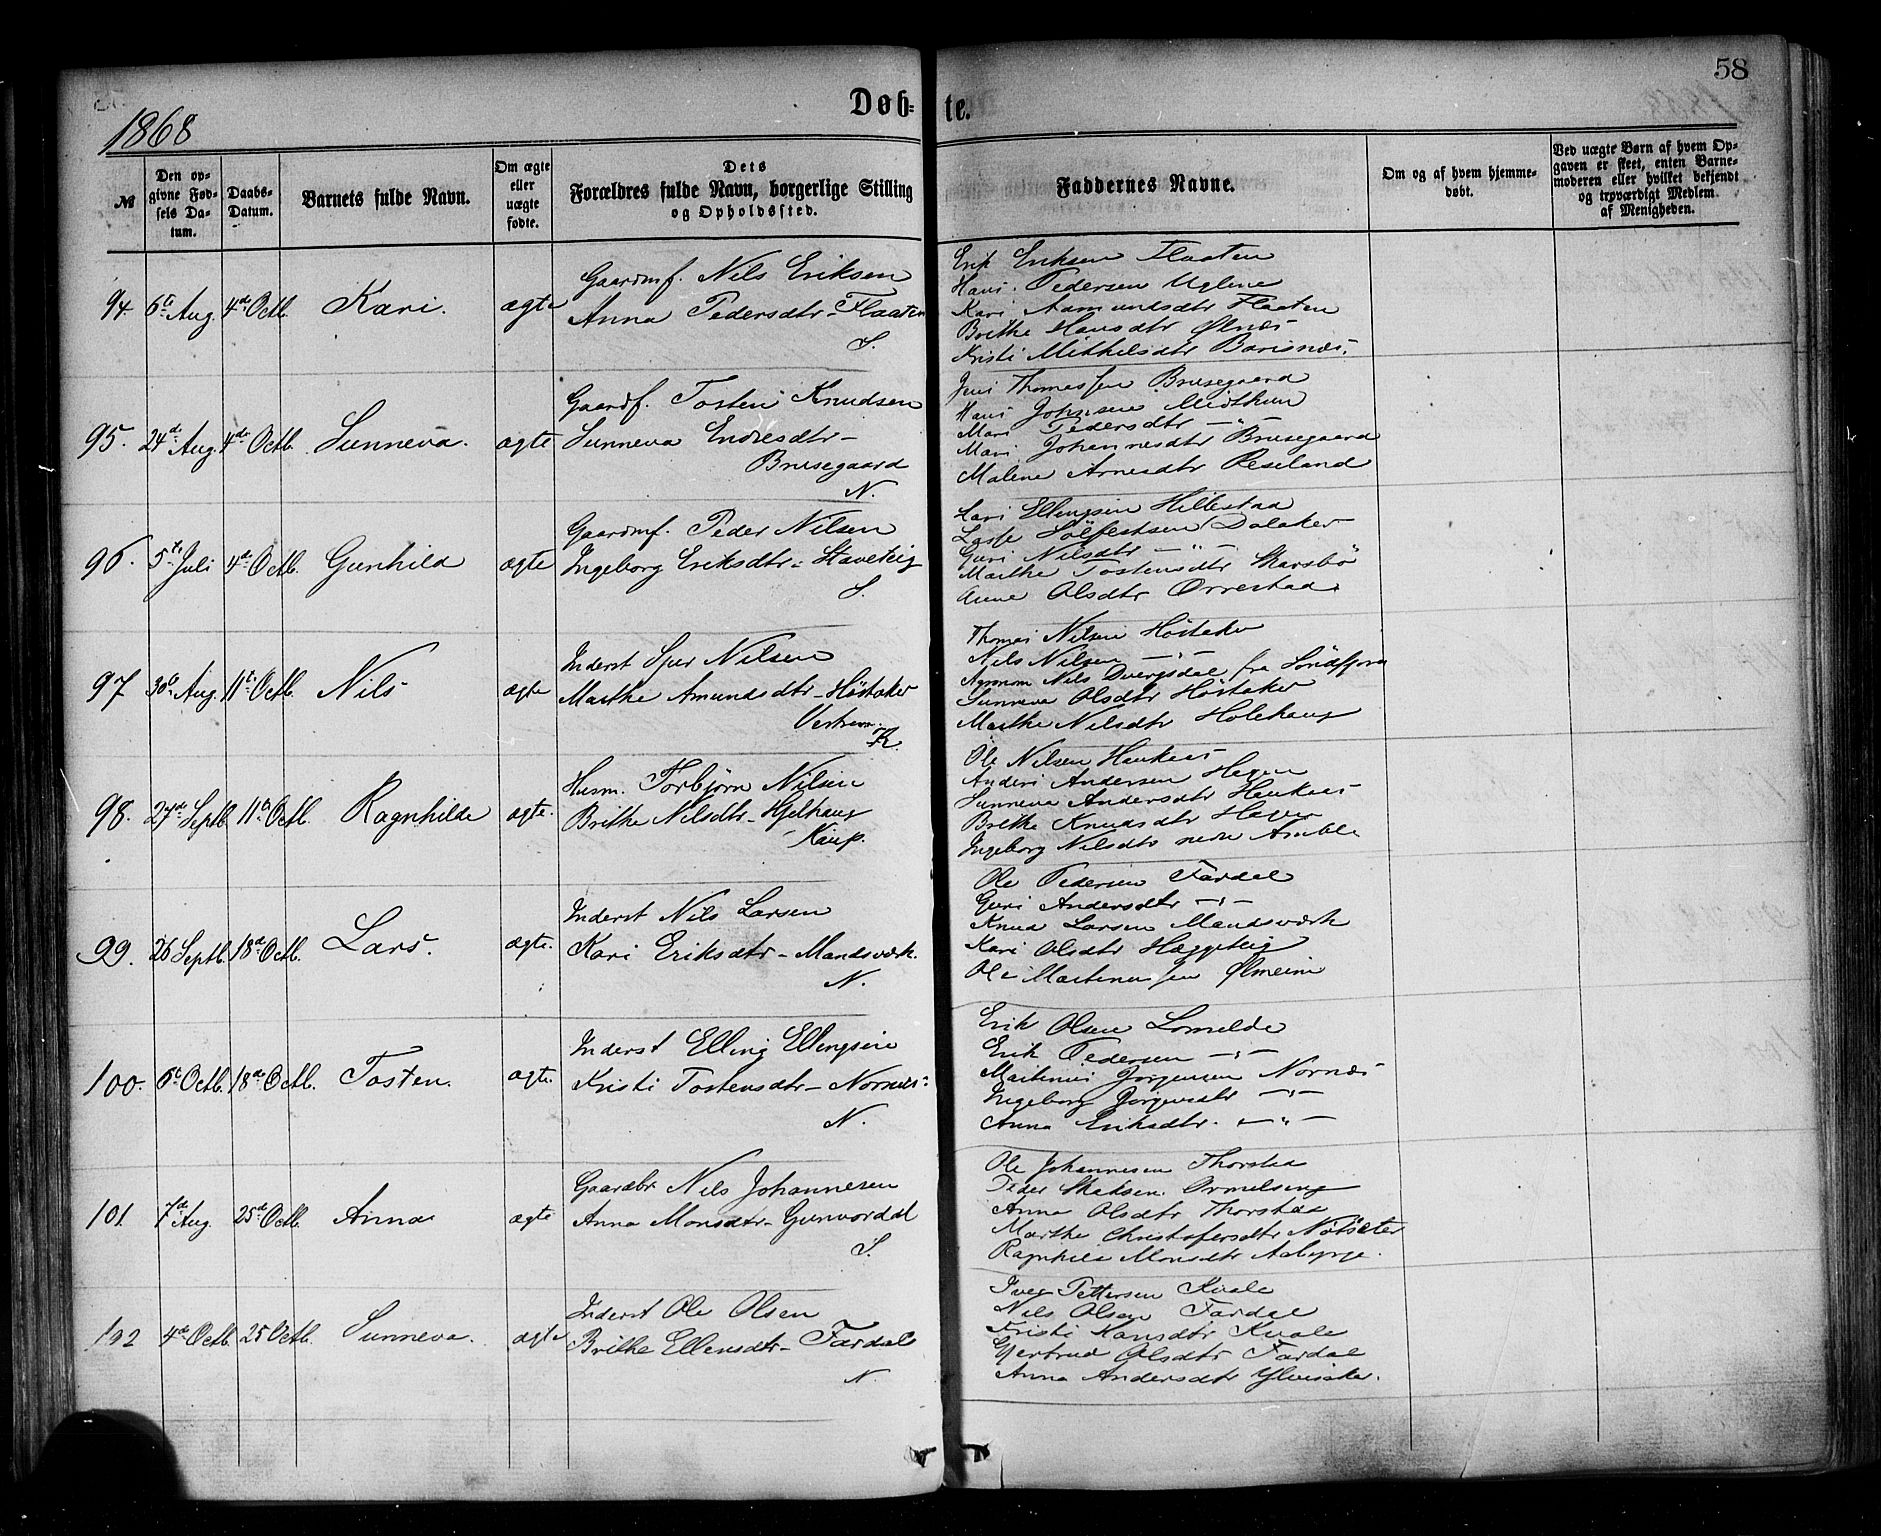 58
1868
Døb- te.
№
Den op-
givne Fød-
sels Da-
tum.
Daabs-
Datum.
Barnets fulde Navn.
Om ægte
eller
uægte
fødte.
Dets
Forældres fulde Navn, borgerlige Stilling
og Opholdssted.
Faddernes Navne.
Om og af hvem hjemme-
døbt.
Ved uægte Børn af hvem Op-
gaven er skeet, enten Barne-
moderen eller hvilket bekjendt
og troværdigt Medlem
af Menigheden.
94 6te Aug. 4de Octb. Kari. ægte
Gaardmf. Nils Eriksen
Anna Pedersdtr - Flaaten
S.
Erik Eriksen Flaaten
Hans Pedersen Uglene
Kari Aamundsdtr Flaaten
Brithe Hansdtr Ølnæs
Kristi Mikkelsdtr Barisnæs.
95. 24de Aug. 4de Octb. Sunneva. ægte
Gaardf. Tosten Knudsen
Sunneva Endresdtr -
Brusegaard
N.
Jens Thomassen Brusegaard
Hans Johnsen Midthun
Mari Pedersdtr — " —
Mari Johannesdtr Brusegaard
Malene Arnesdtr Reseland
96. 5te Juli 4de Octb. Gunhild ægte
Gaardmf. Peder Nilsen
Ingeborg Eriksdtr - Staveteig
S.
Ellingsen Hillestad
Lasse Sølfestsen Dalaker
Guri Nilsdtr — " —
Marthe Tostensdtr Skarsbø
Anne Olsdtr Orrestad.
97 30te Aug. 11te Octb. Nils ægte
Inderst Sjur Nilsen
Marthe Amundsdtr - Høstaker
Vestrem.
R.
Thomas Nilsen Høstaker
Nils Nilsen — " —
Agronom Nils Dvergsdal fra Søndfjord
Sunneva Olsdtr Høstaker
Marthe Nilsdtr Holehaug
98. 27de Septb. 11te Octb. Ragnhilde ægte.
Husm. Torbjørn Nilsen
Brithe Nilsdtr - Hjelhaug
Kaup.
Ole Nilsen Haukaas
Anders Andersen Hagen
Sunneva Andersdtr Haukaas
Brithe Knudsdtr Hagen
Ingeborg Nilsdtr nedre Amble
99. 26 Septb. 18de Octb. Lars. ægte.
Inderst Nils Larsen
Kari Eriksdtr - Mandsværk.
N.
Ole Pedersen Fardal
Guri Andersdtr — " —
Knud Larsen Mandsværk
Kari Olsdtr Hæggeteig
Ole Martinussen Ølmeim
100. 6te Octb. 18de Octb. Tosten. ægte.
Inderst Elling Ellingsen
Kristi Tostensdtr - Nornæs
N.
Erik Olsen Lomelde
Erik Pedersen — " —
Martinus Jørgensen Nornæs
Ingeborg Jørgensdtr — " —
Anna Eriksdtr. — " —
101 7de Aug. 25de Octb. Anna ægte
Gaardbr. Nils Johannesen
Anna Monsdtr - Gunvordal
S.
Ole Johannesen Thorstad
Peder Ormelseng
Anna Olsdtr Thorstad
Marthe Christofersdtr Nøtsæter
Ragnhild Monsdtr Aaberge.
102 4de Octb. 25 Octb. Sunneva. ægte
Inderst Ole Olsen
Brithe Ellensdtr - Fardal
N.
Iver Pettersen Kvale
Nils Olsen Fardal
Kristi Hansdtr Kvale
Gjertrud Olsdtr Fardal
Anna Andersdtr Ylvisaker.